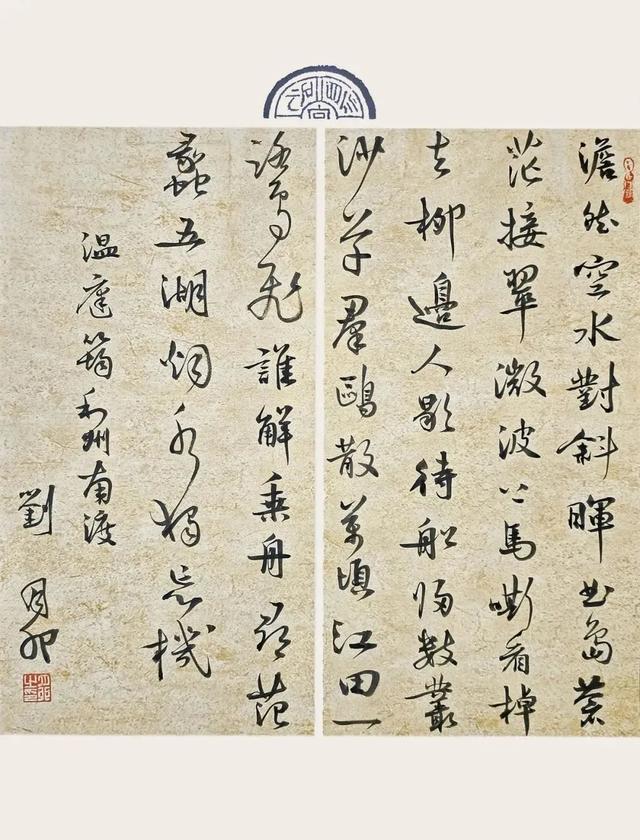 澹然空水對斜暉曲島蒼
茫接翠微波上馬嘶看棹
去柳邊人歇待船歸數叢
沙草羣鷗散萬頃江田一
鷺飛誰解乘舟尋范
蠡五湖烟水獨忘機
温庭筠利州南渡
劉月卯